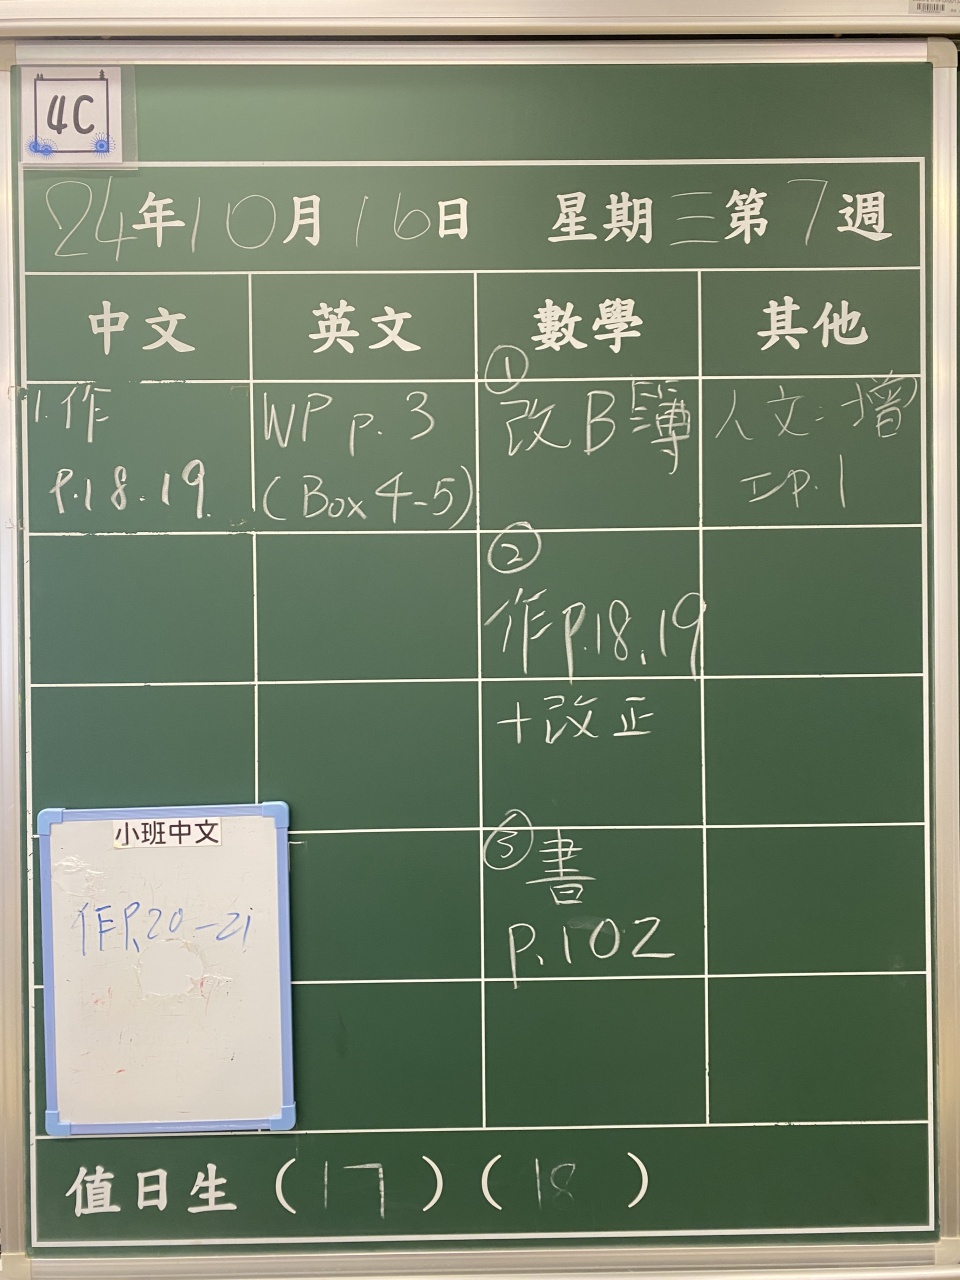 4C
24年10月16日 星期三第7週
中文
英文
數學
其他
1.作
P.18.19.
WP p.3
(Box 4-5)
①
改B簿
②
作p.18,19
+改正
③
書
p.102
人文:增
工p.1
小班中文
作P.20-21
值日生(17)(18)